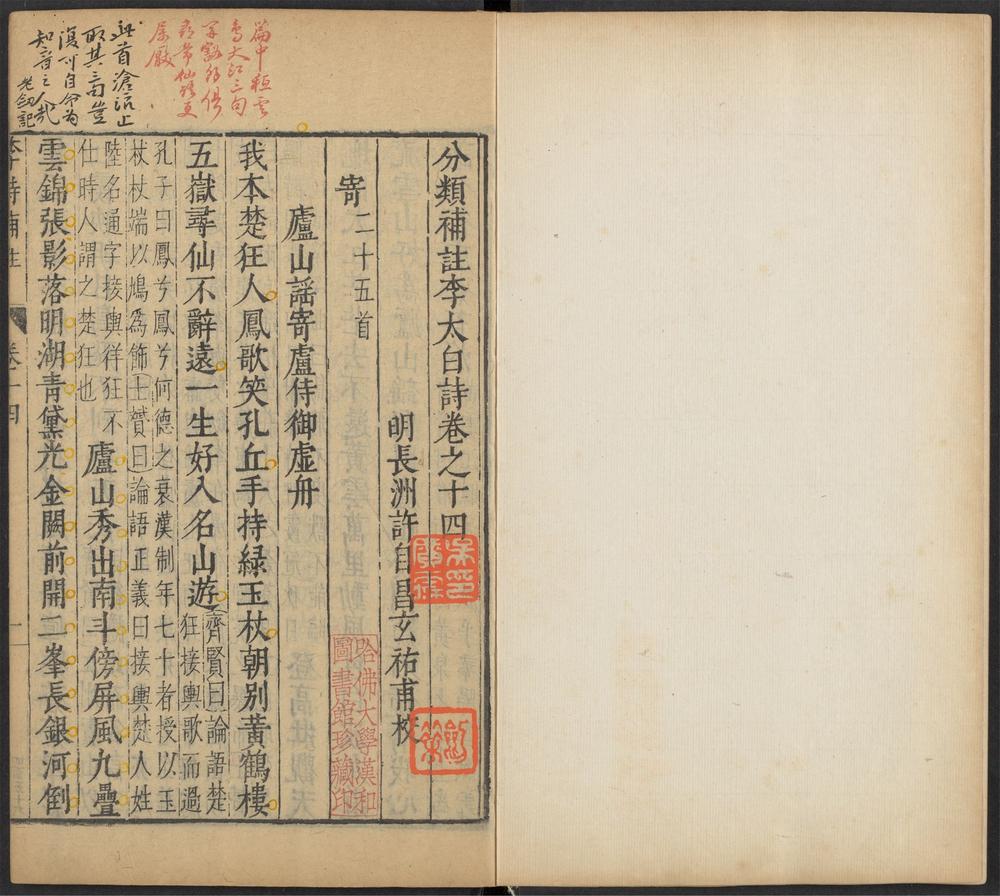 分類補註李太白詩卷之十四
明長洲許自昌玄祐甫校
寄二十五首
廬山謡寄盧侍御虚舟
我本楚狂人鳳歌笑孔丘手持緑玉杖朝别黄鶴樓
五嶽尋仙不辭遠一生好入名山遊
齊賢曰論語楚
狂接輿歌而過
孔子曰鳳兮鳳兮何德之衰漢制年七十者授以玉
杖杖端以鳩爲飾士贇曰論語正義曰接輿楚人姓
陸名通字接輿佯狂不
仕時人謂之楚狂也
廬山秀出南斗傍屏風九疊
雲錦張影落明湖青黛光金闕前開二峯長銀河倒
李詩補註
卷十四
一
哈佛大學漢和
圖書館珍藏印
篇中
大江三句
此首滄浪止
取其三句豈
復可自命爲
知音之人哉